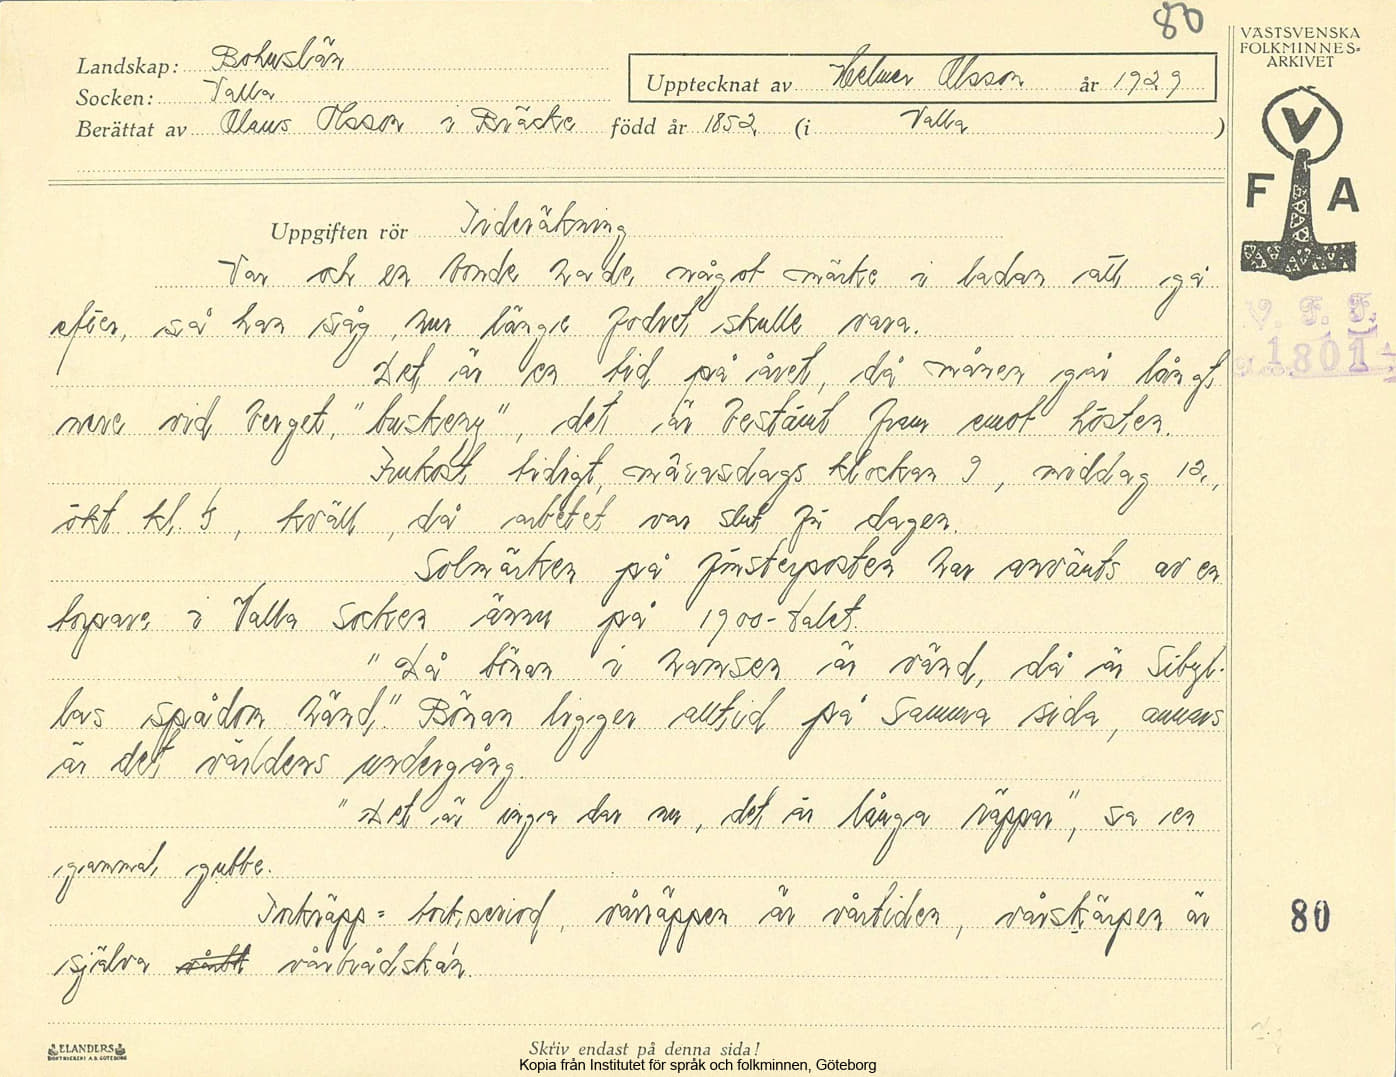 80
VÄSTSVENSKA
FOLKMINNES=
ARKIVET
Landskap: Bohuslän
Upptecknat av Helmer Olsson år 1929
Socken: Valla
Berättat av Olaus Olsson i Bräcke född år 1852 (i Valla )
V
F A
Uppgiften rör Tideräkning
Var och en bonde hade något märke i ladan att gå
efter, så han såg, hur länge fodret skulle vara.
V. F. F.
1801
Det är en tid på året, då månen går långt
nere vid berget, "buskeny", det är bestämt fram emot hösten.
Frukost tidigt, morasdags klockan 9, middag 12,
ökt kl. 5, kväll, då arbetet var slut för dagen.
Solmärken på fönsterposten har använts av en
torpare i Valla socken ännu på 1900-talet.
"Då bönan i hamsen är vänd, då är Sibyl-
las spådom händ." Bönan ligger alltid på samma sida, annars
är det världens undergång.
"Det är inga dar nu, det är långa räppar", sa en
gammal gubbe.
Torkräpp = tork.period, vårräppen är vårtiden, vårskärpen är
själva vårbrådskan.
80
ELANDERS
BOKTRYCKERI A.B. GÖTEBORG
Skriv endast på denna sida!
Kopia från Institutet för språk och folkminnen, Göteborg